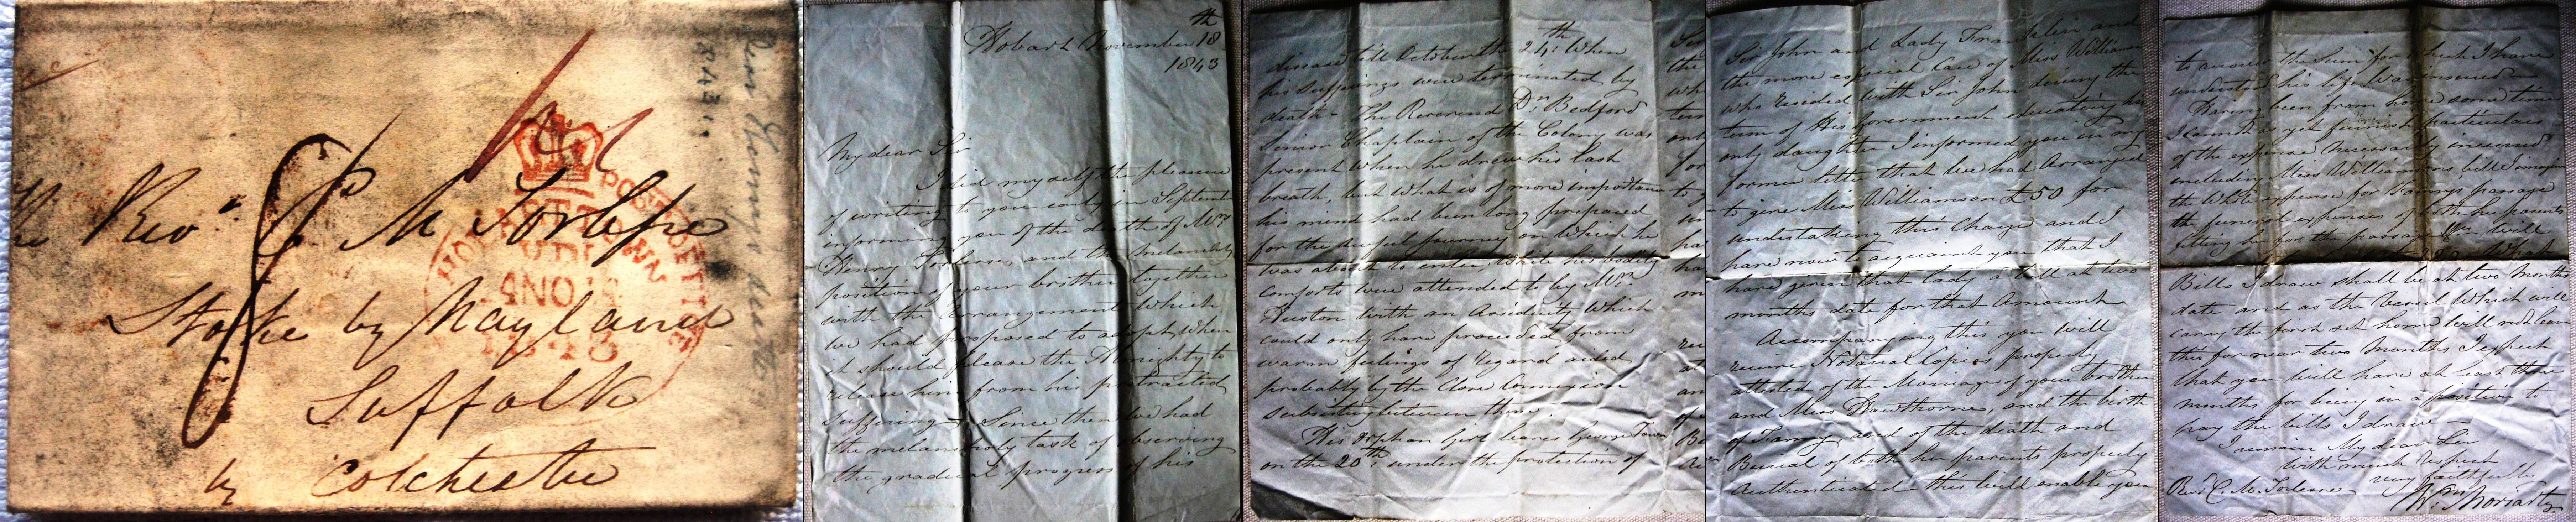 The Revd C M Torlesse
Stoke by Nayland
Suffolk
by Colchester
POST OFFICE
HOBART TOWN
V.D.L
14 NO 14
1843
1843
Hobart November 18th
1843
My dear Sir
I did myself the pleasure
of writing to you early in September
informing you of the death of Mrs
Henry Torlesse, and the melancholy
position of your brother together
with the arrangement which
we had proposed to adopt, when
it should please the Almighty to
release him from his protracted
suffering. Since then we had
the melancholy task of observing
the gradual progress of his
disease till October the 24th. When
his sufferings were terminated by
death - The Reverend Dr. Bedford
Senior Chaplain of the Colony was
present when he drew his last
breath, but what is of more importance
his mind had been long prepared
for the awful journey on which he
was about to enter, while his bodily
comforts were attended to by Mrs
Huston with an assiduity which
could only have proceeded from
warm feelings of regard aided
probably by the close connexion
subsisting between them.
His orphan Girl leaves George Town
on the 20th, under the protection of
Sir John and Lady Franklin and
the more especial Care of Miss Williamson
who resided with Sir John during the
term of His Government educating his
only daughter I informed you in my
former letter that we had arranged
to give Miss Williamson £50 for
undertaking this Charge and I
have now to acquaint you that I
have given that lady a bill at two
months date for that Amount
Accompanying this you will
receive Notarial Copies properly
attested of the Marriage of your brother
and Miss Hawthorne, and the birth
of Fanny, and of the death and
Burial of both her parents properly
Authenticated - this will enable you
to answer the Sum for which I have
understood his life was insured -
Having been from home some time
I cannot as yet furnish particulars
of the expense necessarily incurred
including Miss Williamsons bill I
the whole expense for Fannys passage
the funeral expenses of both her parents
fitting her for the passage &c will
Bills I draw shall be at two months
date and as the vessel which will
carry the first set home will not leave
this for near two months I expect
that you will have at least three
months for being in a position to
pay the bills I draw -
I remain My dear Sir
with much respect
very faithfully
Revd C. M. Torlesse
Wm Moriarty